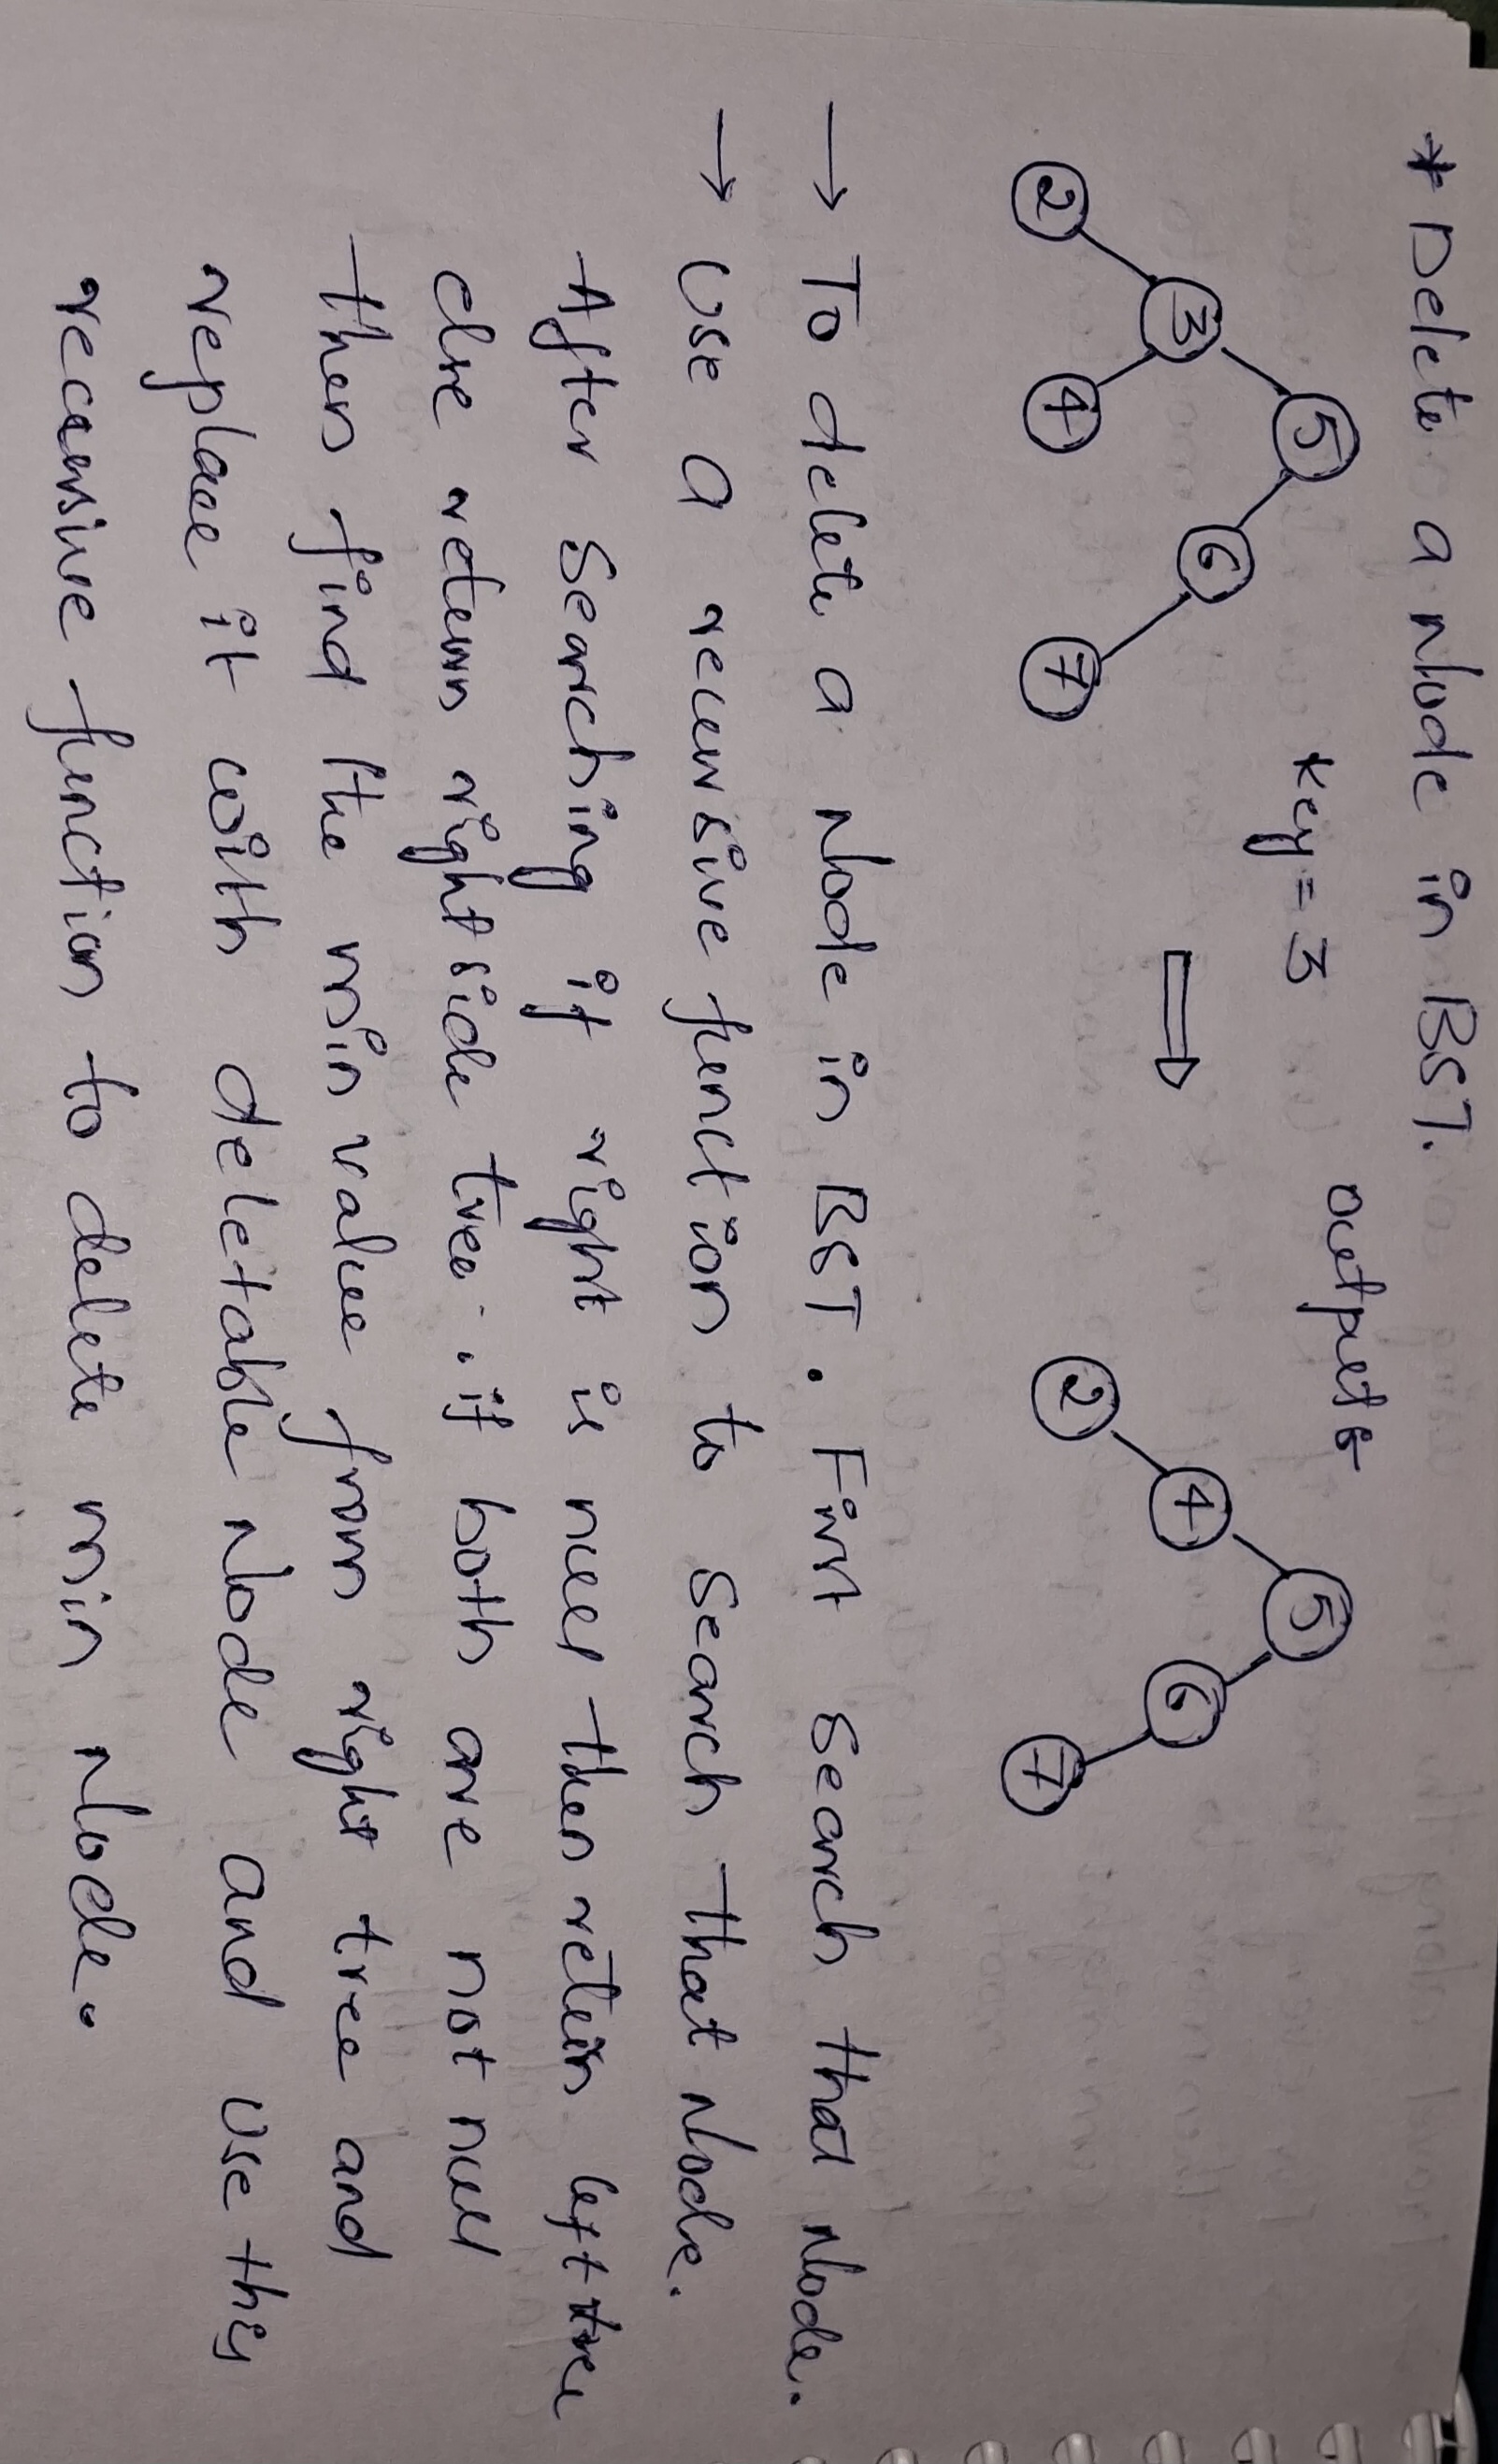 * Delete a Node in BST.
key = 3
output :-
5
3
6
2
4
7
5
4
6
2
7
→ To delete a Node in BST. First search that Node.
→ Use a recursive function to search that Node.
After searching if right is null then return left tree
else return right side tree. if both are not null
then find the min value from right tree and
replace it with deletable Node and use this
recursive function to delete min Node.